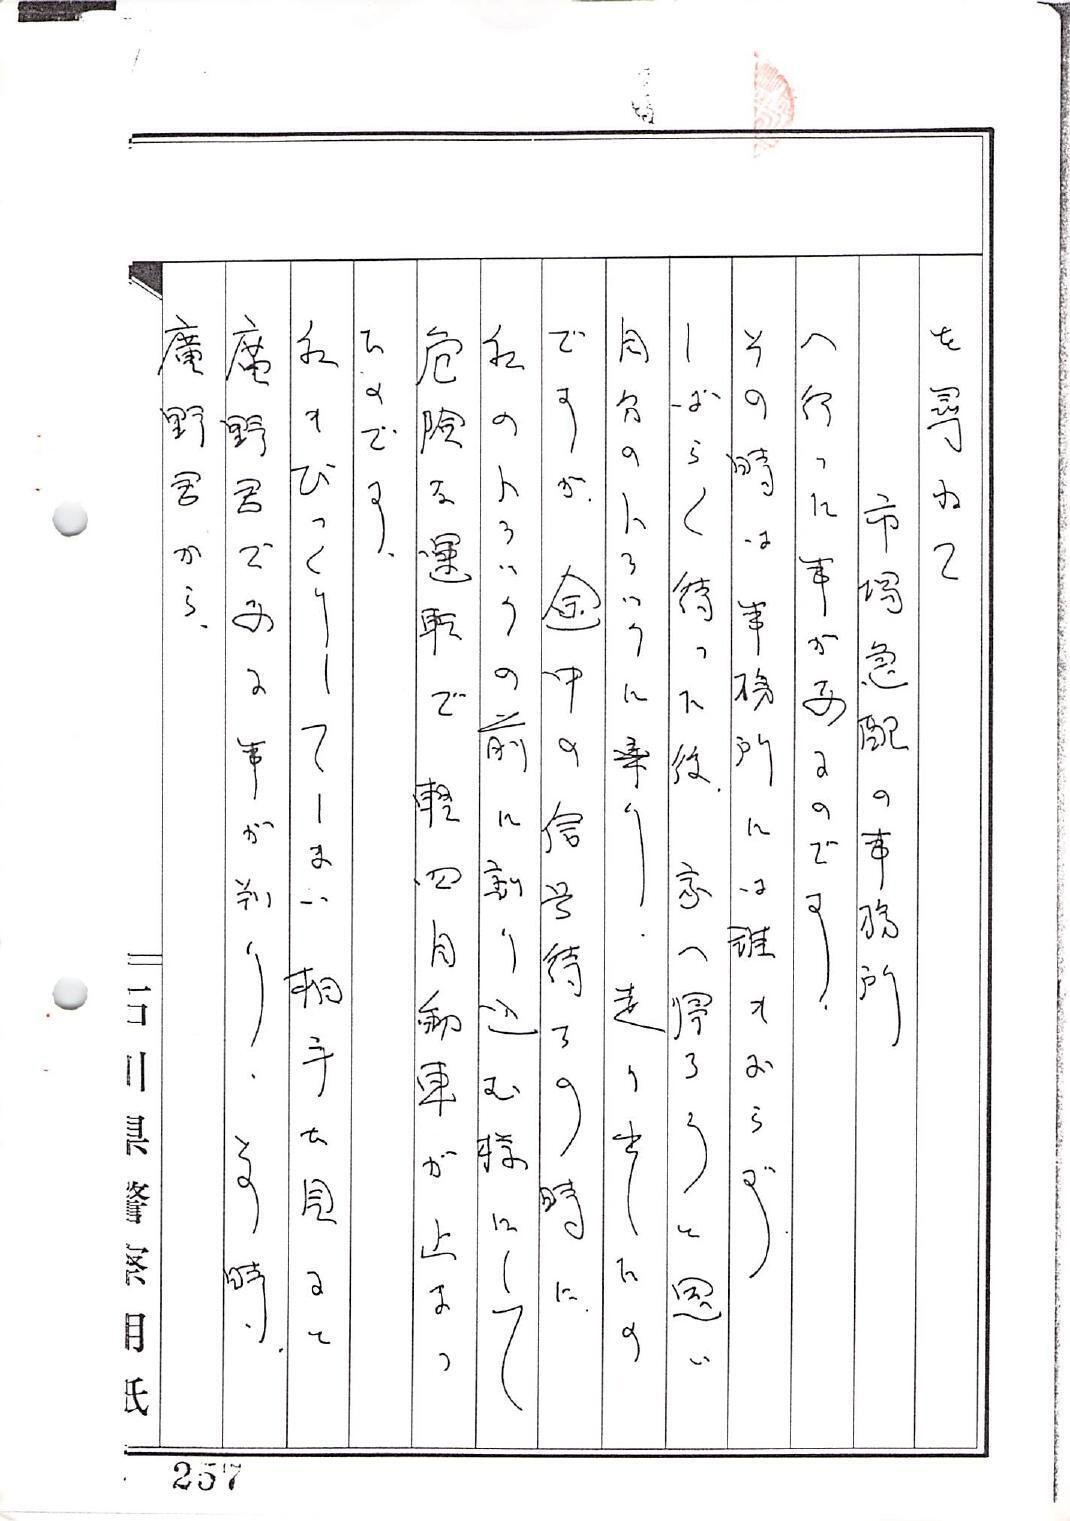 を尋ねて
市場急配の事務所
へ行った事があるのです。
その時は事務所には誰もおらず、
しばらく待った後、家へ帰ろうと思い
自分のトラックに乗り、走り出したの
ですが、途中の信号待ちの時に、
私のトラックの前に割り込む様にして
危険な運転で軽四自動車が止まっ
たのです。
私もびっくりしてしまい相手を見ると
廣野君である事が判り、その時、
廣野君から、
石川県警察用紙
257